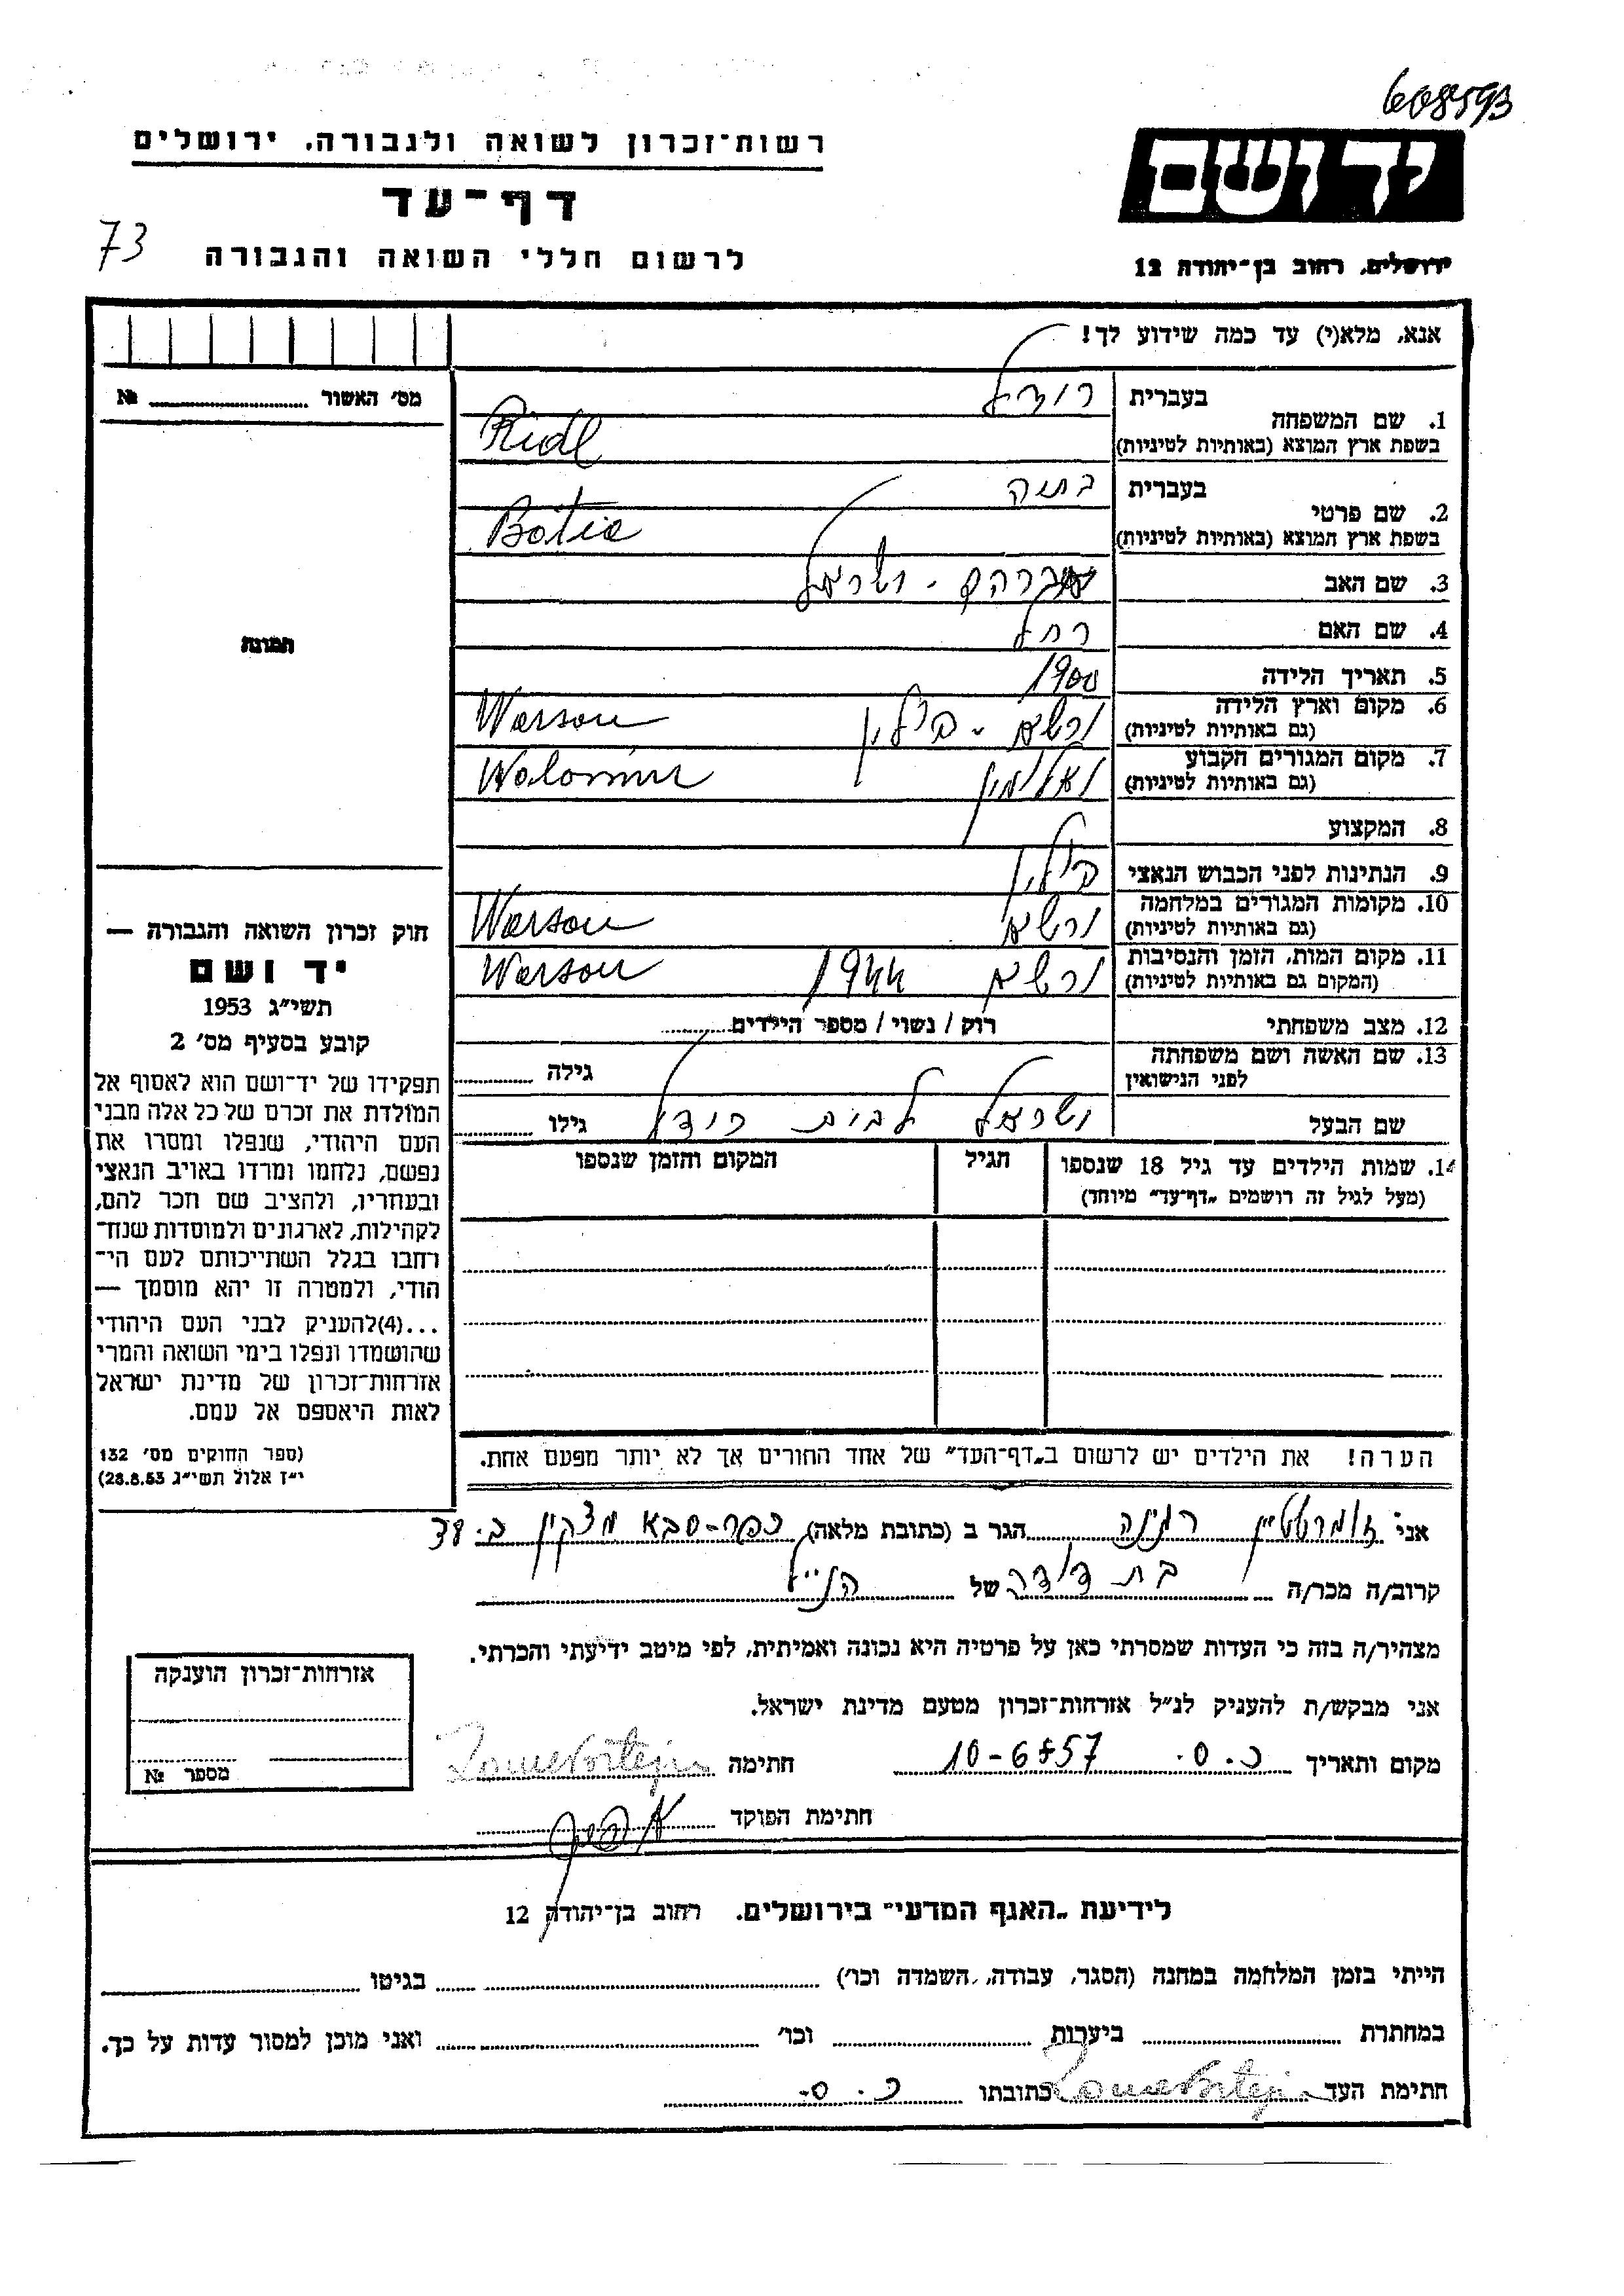 608593
רשות־זכרון לשואה ולגבורה, ירושלים
יד ושם
דף־עד
73
לרשום חללי השואה והגבורה
ירושלים, רחוב בן־יהודה 12
אנא, מלא(י) עד כמה שידוע לך!
מס' האשור № ........
1. שם המשפחה בעברית רודל
בשפת ארץ המוצא (באותיות לטיניות) Rudl
2. שם פרטי בעברית בתיה
בשפת ארץ המוצא (באותיות לטיניות) Batia
3. שם האב אברהם - ישראל
4. שם האם רחל
תמונה
5. תאריך הלידה 1900
6. מקום וארץ הלידה (גם באותיות לטיניות) ורשא - פולין Warsau
7. מקום המגורים הקבוע (גם באותיות לטיניות) Wolomin
8. המקצוע
9. הנתינות לפני הכבוש הנאצי פולין
10. מקומות המגורים במלחמה (גם באותיות לטיניות) ורשא Warsau
11. מקום המות, הזמן והנסיבות (המקום גם באותיות לטיניות) ורשא 1944 Warsau
12. מצב משפחתי רוק / נשוי / מספר הילדים........
13. שם האשה ושם משפחתה לפני הנישואין גילה ........
שם הבעל ישראל לבוב רודל גילו ........
14. שמות הילדים עד גיל 18 שנספו (מעל לגיל זה רושמים „דף־עד" מיוחד)
הגיל
המקום והזמן שנספו
חוק זכרון השואה והגבורה —
יד ושם
תשי"ג 1953
קובע בסעיף מס' 2
תפקידו של יד־ושם הוא לאסוף אל
המולדת את זכרם של כל אלה מבני
העם היהודי, שנפלו ומסרו את
נפשם, נלחמו ומרדו באויב הנאצי
ובעוזריו, ולהציב שם וזכר להם,
לקהילות, לארגונים ולמוסדות שנח־
רבו בגלל השתייכותם לעם הי־
הודי, ולמטרה זו יהא מוסמך —
...(4)להעניק לבני העם היהודי
שהושמדו ונפלו בימי השואה והמרי
אזרחות־זכרון של מדינת ישראל
לאות היאספם אל עמם.
(ספר החוקים מס' 132
י"ז אלול תשי"ג 28.8.53)
הערה! את הילדים יש לרשום ב„דף־העד" של אחד ההורים אך לא יותר מפעם אחת.
אני זומרשטיין הגר ב (כתובת מלאה) כפר-סבא
קרוב/ה מכר/ה בת דודה של הנ"ל
מצהיר/ה בזה כי העדות שמסרתי כאן על פרטיה היא נכונה ואמיתית, לפי מיטב ידיעתי והכרתי.
אני מבקש/ת להעניק לנ"ל אזרחות־זכרון מטעם מדינת ישראל.
מקום ותאריך כ.ס. 10-6-57 חתימה
חתימת הפוקד
אזרחות־זכרון הוענקה
מספר №
לידיעת „האגף המדעי" בירושלים, רחוב בן־יהודה 12
הייתי בזמן המלחמה במחנה (הסגר, עבודה, השמדה וכו') ........ בגיטו ........
במחתרת ........ ביערות ........ וכו' ........ ואני מוכן למסור עדות על כך.
חתימת העד כתובתו כ.ס.